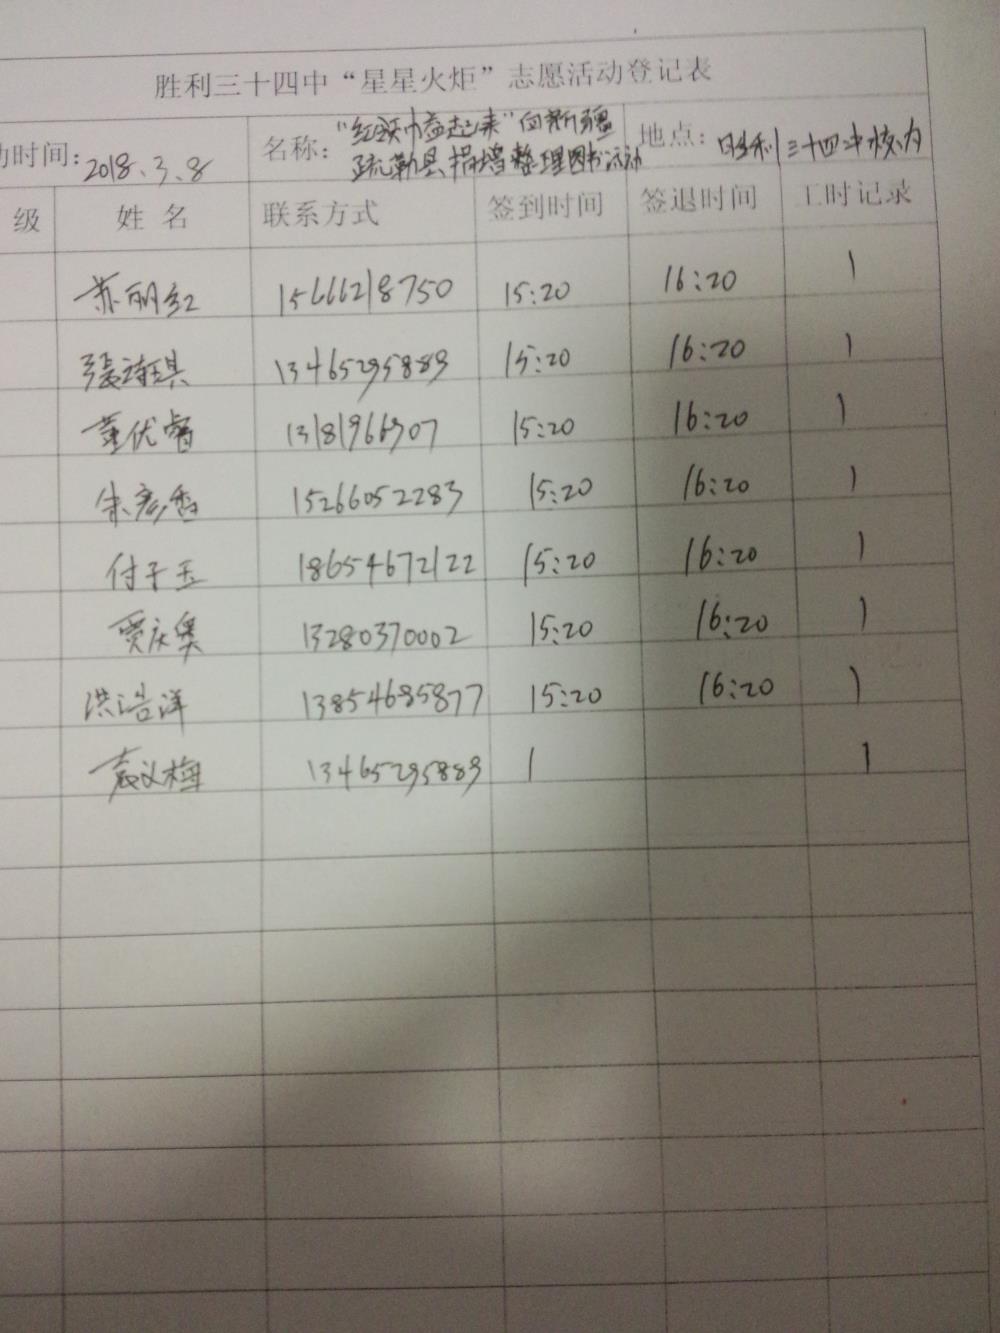 胜利三十四中“星星火炬”志愿活动登记表
动时间: 2018.3.8 名称: “红领巾益起来”向新疆 地点: 胜利三十四中校内
疏勒县捐增整理图书活动
级 姓 名 联系方式 签到时间 签退时间 工时记录
苏丽红 15666218750 15:20 16:20 1
張诗琪 13465295889 15:20 16:20 1
董优睿 15:20 16:20 1
朱彦香 15266052283 15:20 16:20 1
付子玉 18654672122 15:20 16:20 1
贾庆奥 13280370002 15:20 16:20 1
洪浩洋 13854685877 15:20 16:20 1
袁义梅 13465295889 1 1